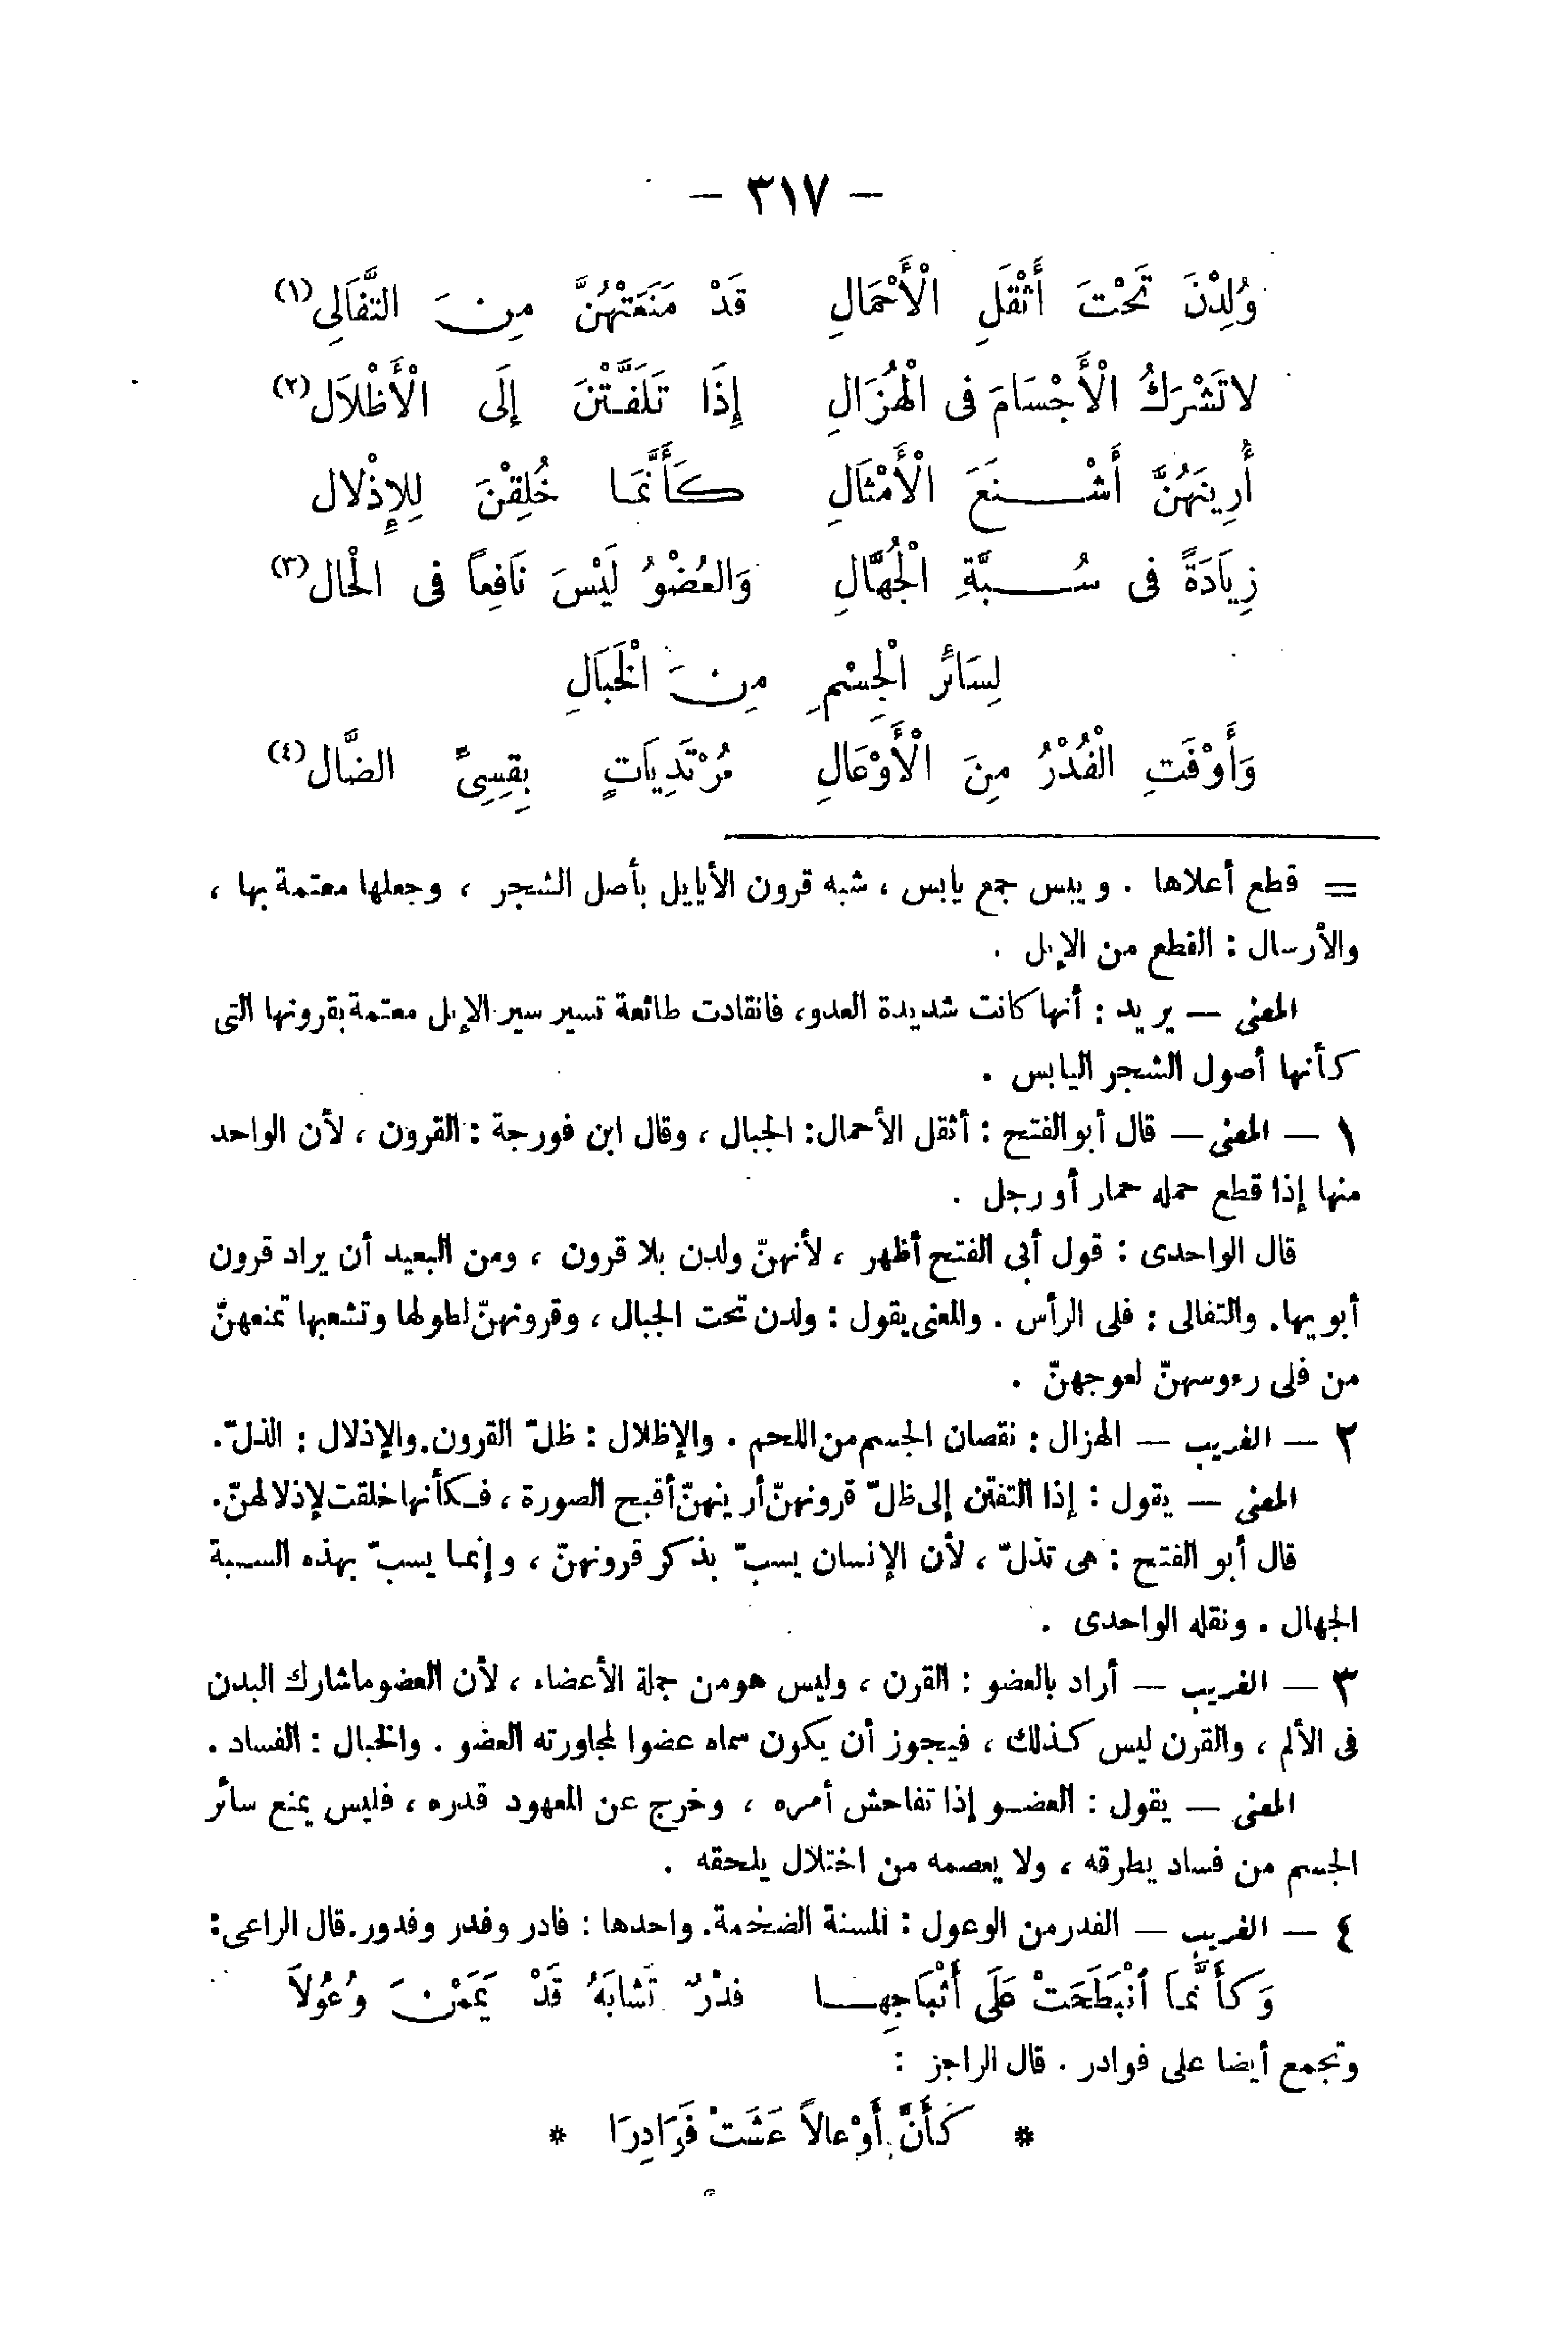 — ٣١٧ —
وُلِدْنَ تَحْتَ أَثْقَلِ الْأَحْمَالِ قَدْ مَنَعَتْهُنَّ مِنَ التَّفَالِى (١)
لاتَشْرَكُ الْأَجْسَامَ فى الْهُزَالِ إِذَا تَلَفَّتْنَ إِلَى الْأَظْلَالِ (٢)
أَرَيْنَهُنَّ أَشْنَعَ الْأَمْثَالِ كَأَنَّمَا خُلِقْنَ لِلإِذْلَال
زِيَادَةً فى سُبَّةِ الْجُهَّالِ وَالعُضْوُ لَيْسَ نَافِعاً فى الْحال (٣)
لِسَائرِ الْجِسْمِ مِنَ الْخَبَالِ
وَأَوْفَتِ الْفُدْرُ مِنَ الْأَوْعَالِ مُرْتَدِيَاتٍ بِقِسِىِّ الضَّال (٤)
= قطع أعلاها . ويبس جمع يابس ، شبه قرون الأيايل بأصل الشجر ، وجعلها معتمة بها ،
والأرسال : القطع من الإبل .
المعنى — يريد : أنها كانت شديدة العدو، فانقادت طائعة تسير سير الإبل معتمة بقرونها التى
كأنها أصول الشجر اليابس .
١ — المعنى — قال أبو الفتح : أثقل الأحمال: الجبال ، وقال ابن فورجة : القرون ، لأن الواحد
منها إذا قطع حمله حمار أو رجل .
قال الواحدى : قول أبى الفتح أظهر ، لأنهنّ ولدن بلا قرون ، ومن البعيد أن يراد قرون
أبويها. والتفالى : فلى الرأس . والمعنى يقول : ولدن تحت الجبال ، وقرونهنّ لطولها وتشعبها تمنعهنّ
من فلى رءوسهنّ لعوجهنّ .
٢ — الغريب — الهزال : نقصان الجسم من اللحم . والإظلال : ظلّ القرون. والإذلال : الذلّ.
المعنى — يقول : إذا التفتن إلى ظلّ قرونهنّ أرينهنّ أقبح الصورة ، فكأنها خلقت لإذلالهنّ.
قال أبو الفتح : هى تذلّ ، لأن الإنسان يسبّ بذكر قرونهنّ ، وإنما يسبّ بهذه السبة
الجهال . ونقله الواحدى .
٣ — الغريب — أراد بالعضو : القرن ، وليس هو من جملة الأعضاء ، لأن العضو ما شارك البدن
فى الألم ، والقرن ليس كذلك ، فيجوز أن يكون سماه عضوا لمجاورته العضو . والخبال : الفساد .
المعنى — يقول : العضو إذا تفاحش أمره ، وخرج عن المعهود قدره ، فليس يمنع سائر
الجسم من فساد يطرقه ، ولا يعصمه من اختلال يلحقه .
٤ — الغريب — الفدر من الوعول : المسنة الضخمة. واحدها : فادر وفدر وفدور. قال الراعى :
وَكَأَنَّمَا انْبَطَحَتْ عَلَى أَثْبَاجِهَا فدْرٌ تَشَابَهُ قَدْ يَمَمْنَ وُعُولاَ
وتجمع أيضا على فوادر . قال الراجز :
* كَأَنَّ أَوْعالاً عَشَتْ فَرَادِرَا *